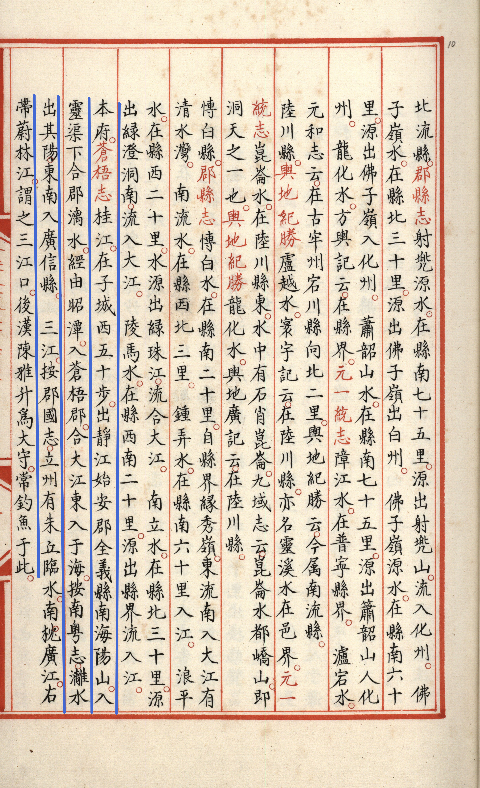 10
北流縣郡縣志射㙡源水在縣南七十五里源出射㙡山流入化州 佛
子嶺水在縣北三十里源出佛子嶺出白州 佛子嶺源水在縣南六十
里源出佛子嶺入化州 蕭韶山水在縣南七十五里源出簫韶山入化
州 龍化水方輿記云在縣界元一統志障江水在普寧縣界 瀘宕水
元和志云在古牢州宕川縣向北二里輿地紀勝云今属南流縣
陸川縣輿地紀勝廬越水寰宇記云在陸川縣亦名靈溪水在邑界元一
統志崑崙水在陸川縣東水中有石肖崑崙九域志云崑崙水都嶠山即
洞天之一也輿地紀勝龍化水輿地廣記云在陸川縣
博白縣郡縣志博白水在縣南二十里自縣界緣秀嶺東流南入大江有
清水灣 南流水在縣西北三里 鍾弄水在縣南六十里入江 浪平
水在縣西二十里水源出緑珠江流合大江 南立水在縣北三十里源
出緑澄洞南流入大江 陵馬水在縣西南二十里源出縣界流入江
本府蒼梧志桂江在子城西五十步出靜江始安郡全義縣南海陽山入
靈渠下合郡漓水經由昭潭入蒼梧郡合大江東入于海按南粤志灕水
出其陽東南入廣信縣 三江按郡國志立州有朱立臨水南挹廣江右
帶蔚林江謂之三江口後漢陳雅升爲大守常釣魚于此